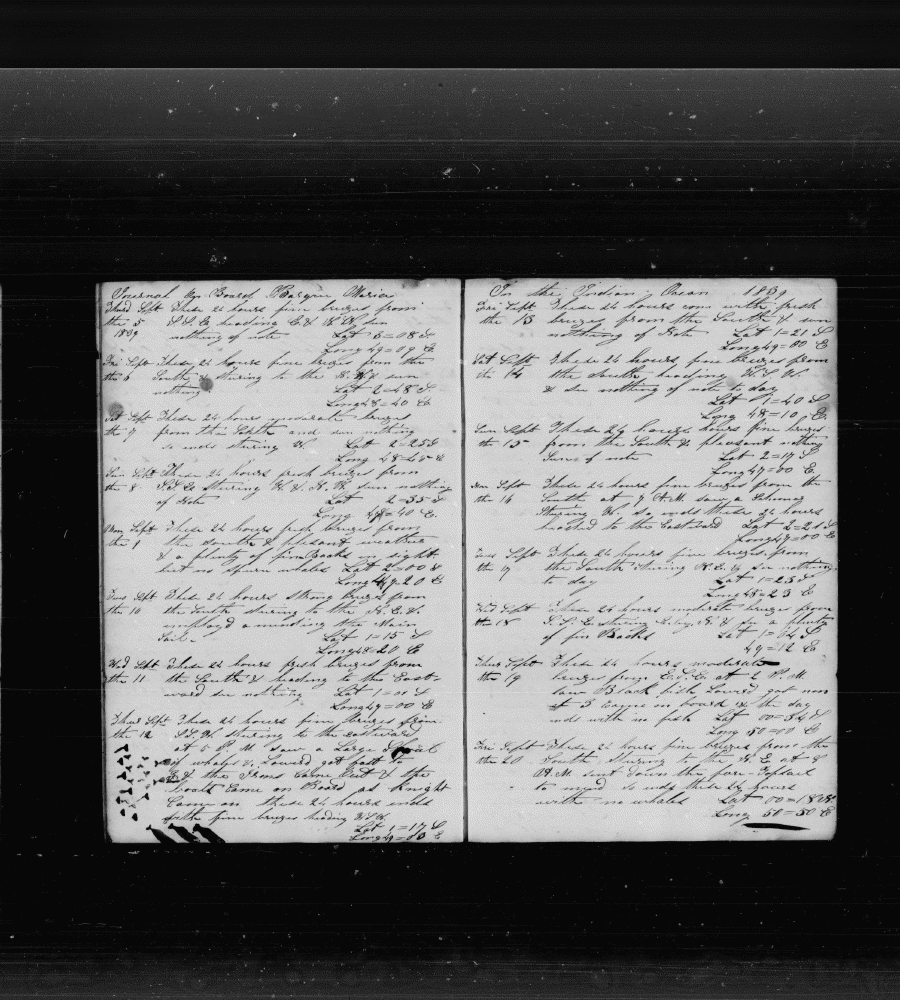 Journal On Board Barque Maria
Thurd Sept These 24 hours fine breezes from
the 5 S.S.E heading E. & W. W sun
1839 nothing of note Lat 3=08 S.
Long 49=09 E
Fri Sept These 24 hours fine breezes from the
the 6 South & sturing to the sun
nothing Lat 2=48 S
Long 48=40 E
Sat Sept These 24 hours moderate breezes
the 7 from the South and sun nothing
so ends sturing W. Latt 2=25 S
Long 48=45 E
Sun Sept These 24 hours fresh breezes from
the 8 sturing W & N. W sun nothing
of Note Lat 2=35 S
Long 47=40 E.
Mon Sept These 24 hours fresh breezes from
the 9 the South & pleasant weather
& a plenty of finBacks in sight
but no spurm whales Lat 2=00 S
Long 47=20 E
Tues Sept These 24 hours strong breezes from
the 10 the South sturing to the N. E &
employd a mending the Main
Sail. Lat 1=15 S
Long 48=20 E
Wed Sept These 24 hours fresh breezes from
the 11 the South & heading to the East-
ward see nothing Lat 1=01 S
Long 49=00 E
Thur Sept These 24 hours fine breezes from
the 12 S.S.W sturing to the eastward
at 5 P. M saw a Large
of whales & Lowerd got fast to
& the Irons Came Out & the
boats Came on Board as Knight
Came on these 24 hours ends
with fine breezes heading
Lat 1=17 S
Long 49=03 E
In the Indian Ocean 1839
Fri Sept These 24 hours com with fresh
the 13 breezes from the South & sun
nothing of Note Lat 1=21 S
Long 49=00 E
Sat Sept These 24 hours fine breezes from
the 14 the South heading W. S W.
& see nothing of note to day
Lat 1=40 S
Long 48=10 E
Sun Sept These 24 hours fine breezes
the 15 from the South & pleasant nothing
Sune of note Lat 2=17 S
Long 47=00 E
Mon Sept These 24 hours fine breezes from the
the 16 South at 7 A.M saw a Schuner
Stuing W so ends these 24 hours
headed to the Eastward Lat 2=21 S
Long 47=00 E
Tues Sept These 24 hours fine breezes from
the 17 the South sturing N. E. & see nothing
to day Lat 1=23 S
Long 48=23 E
Wed Sept These 24 hours moderate breezes from
the 18 S. S. E sturing & see a plenty
of fin Backs Lat 1=04 S
49=12 E
Thur Sept These 24 hours moderate
the 19 breezes from E.S.E at 2 P. M
saw Black fish Lowerd got non
at 5 Came on board so the day
ends with no fish Lat 00=54 S
Long 50=10 E
Fri Sept These 24 hours fine breezes from the
the 20 South Sturing to the N. E at 8
A.M sent down the fore-Topsail
to mend so ends these 24 hours
with no whales Lat 00=18
Long 50=50 E